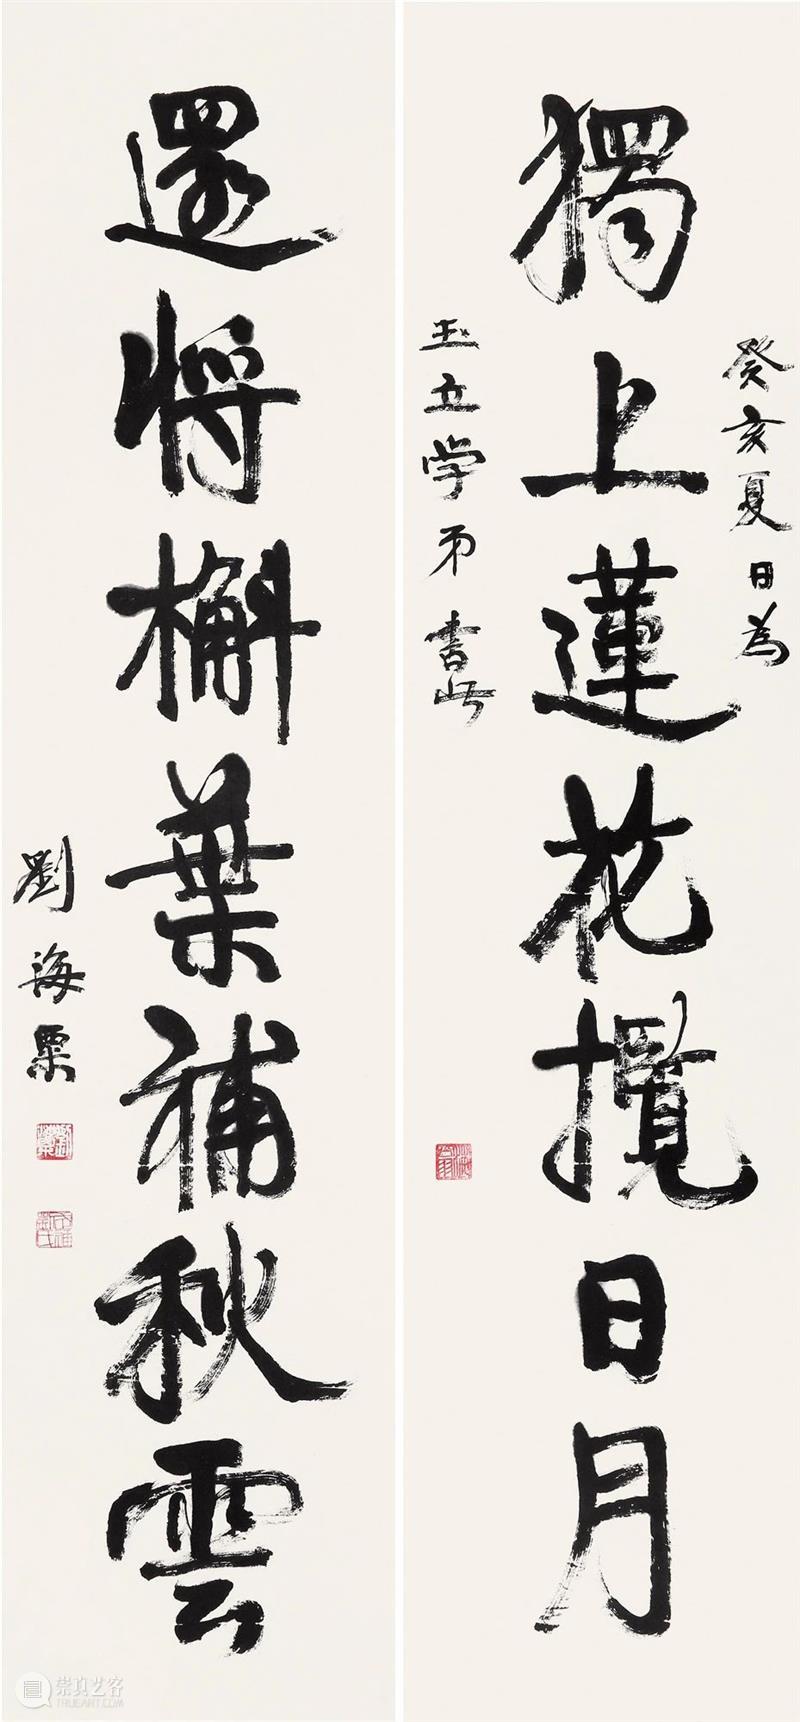 癸亥夏日為
獨上蓮花攬日月
玉立学弟書此
還將槲葉補秋雲
劉海粟
崇真艺客
TRUEART.COM